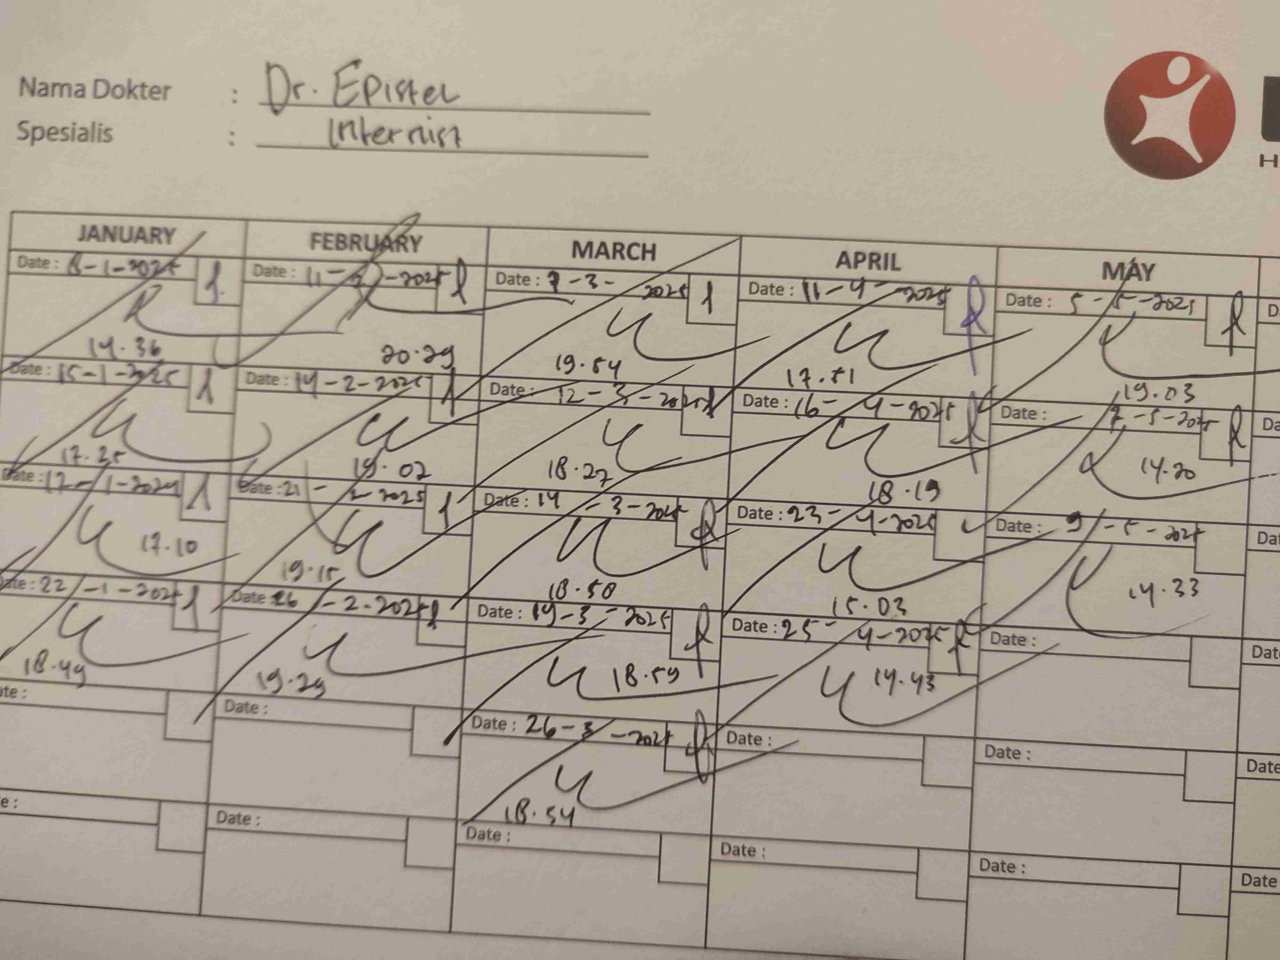 Nama Dokter : Dr. Epistel
Spesialis : Internist
H
JANUARY FEBRUARY MARCH APRIL MAY
Date : 8-1-2025 Date : 11-2-2025 Date : 7-3-2025 Date : 11-4-2025 Date : 5-5-2025 D
14.36 20.29 19.54 17.51 19.03
Date : 15-1-2025 Date : 14-2-2025 Date : 12-3-2025 Date : 16-4-2025 Date : 7-5-2025 Da
17.25 19.02 18.27 18.19 14.20
Date : 17-1-2025 Date : 21-2-2025 Date : 14-3-2025 Date : 23-4-2025 Date : 9-5-2025 Dat
17.10 19.15 18.58 15.03 14.33
ate : 22-1-2025 Date : 26-2-2025 Date : 19-3-2025 Date : 25-4-2025 Date : Dat
18.49 19.29 18.59 14.43
te : Date : Date : 26-3-2025 Date : Date : Date
18.54
e : Date : Date : Date : Date : Date